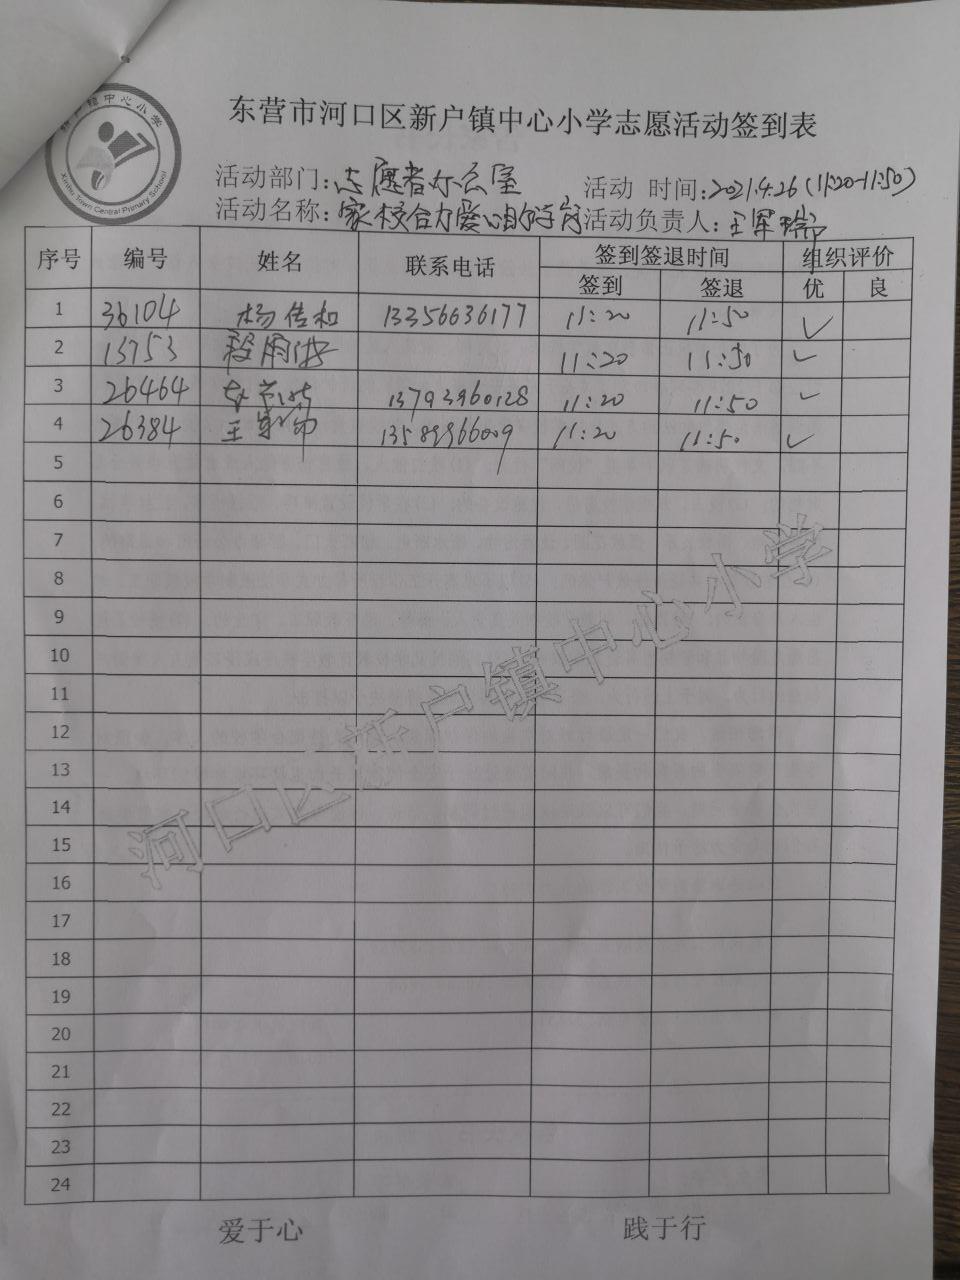 新户镇中心小学
Xinhu Town Central Primary School
东营市河口区新户镇中心小学志愿活动签到表
活动部门:志愿者办公室 活动 时间:2021.4.26(11:20-11:50)
活动名称:家校合力爱心助 活动负责人:王军瑞
序号 编号 姓名 联系电话 签到签退时间 组织评价
签到 签退 优 良
1 36104 杨传和 13356636177 11:20 11:50 ✓
2 13753 11:20 11:50 ✓
3 26464 13793960128 11:20 11:50 ✓
4 26384 王军瑞 13589966009 11:20 11:50 ✓
5
6
7
8
9
10
11
12
13
14
15
16
17
18
19
20
21
22
23
24
河口区新户镇中心小学
爱于心 践于行